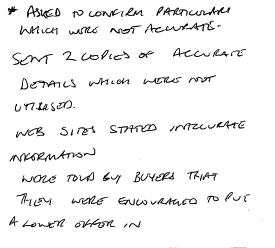 * ASKED TO CONFIRM PARTICULARS
WHICH WERE NOT ACCURATE.
SENT 2 COPIES OF ACCURATE
DETAILS WHICH WERE NOT
UTILISED.
WEB SITES STATED INACCURATE
INFORMATION
WERE TOLD BY BUYERS THAT
THEY WERE ENCOURAGED TO PUT
A LOWER OFFER IN